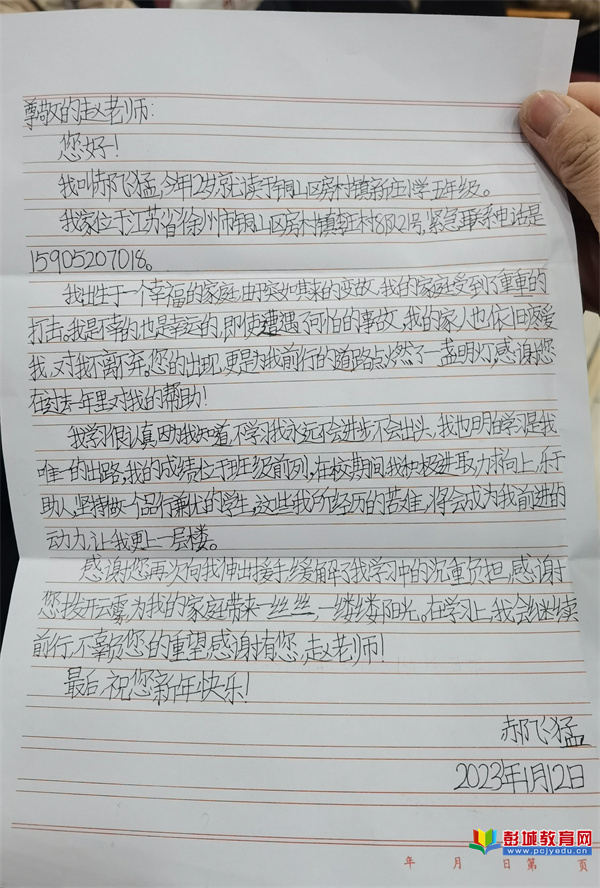 尊敬的赵老师:
您好!
我叫郝飞猛,今年12岁就读于铜山区房村镇新庄小学五年级。
我家位于江苏省徐州市铜山区房村镇李王村8队21号,紧急联系电话是
15905207018。
我出生于一个幸福的家庭,由于突如其来的变故,我的家庭受到了重重的
打击。我是不幸的也是幸运的,即使遭遇了可怕的事故,我的家人也依旧深爱
我,对我不离不弃。您的出现,更是为我前行的道路点燃了一盏明灯,感谢您
在过去一年里对我的帮助!
我学习很认真因为我知道不学习我永远不会进步不会出头,我也明白学习是我
唯一的出路,我的成绩位于班级前列,在校期间我积极进取力求向上,乐于
助人,坚持做一个品行兼优的学生,这些我所经历的苦难,将会成为我前进的
动力,让我更上一层楼。
感谢您再次向我伸出援手缓解了我学习中的沉重负担,感谢
您拨开云雾,为我的家庭带来一丝丝,一缕缕阳光。在学习上,我会继续
前行,不辜负您的重望,感谢有您,赵老师!
最后,祝您新年快乐!
郝飞猛
2023年1月12日
彭城教育网
www.pcjyedu.cn
年 月 日第 页